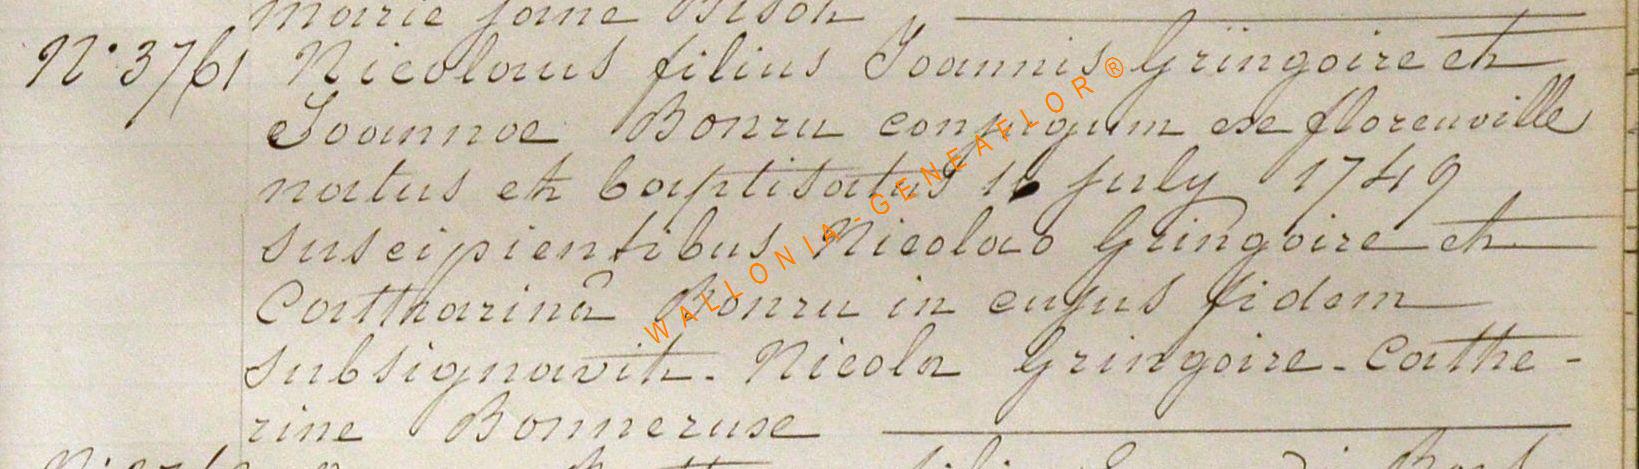 marie jane Bison
N° 3761 Nicolaus filius Joannis Gringoire et
Joannae Bonru conjugum ex florenville
natus et baptisatus 16 july 1749
suscipientibus Nicolao Gringoire et
Cattharinâ Bonru in cujus fidem
subsignavit. Nicola Gringoire - Cathe-
rine Bonneruse
WALLONIA-GENEAFLOR®